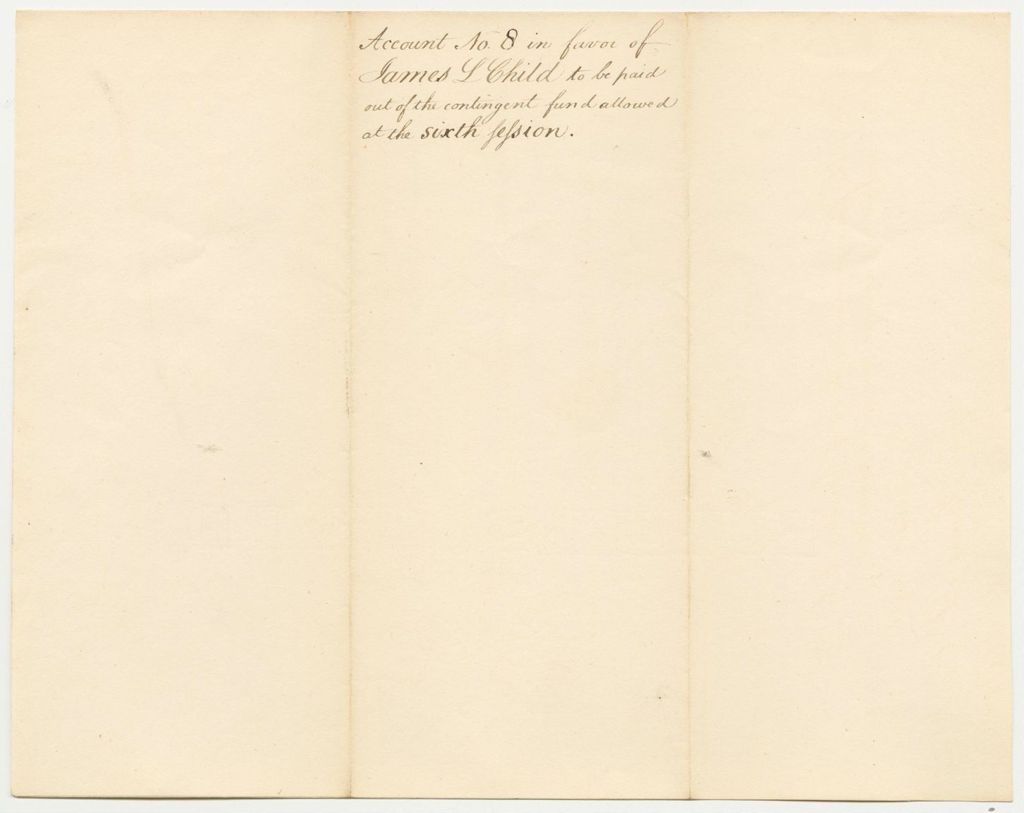 Account No. 8 in favor of
James L Child to be paid
out of the contingent fund allowed
at the sixth seſsion.